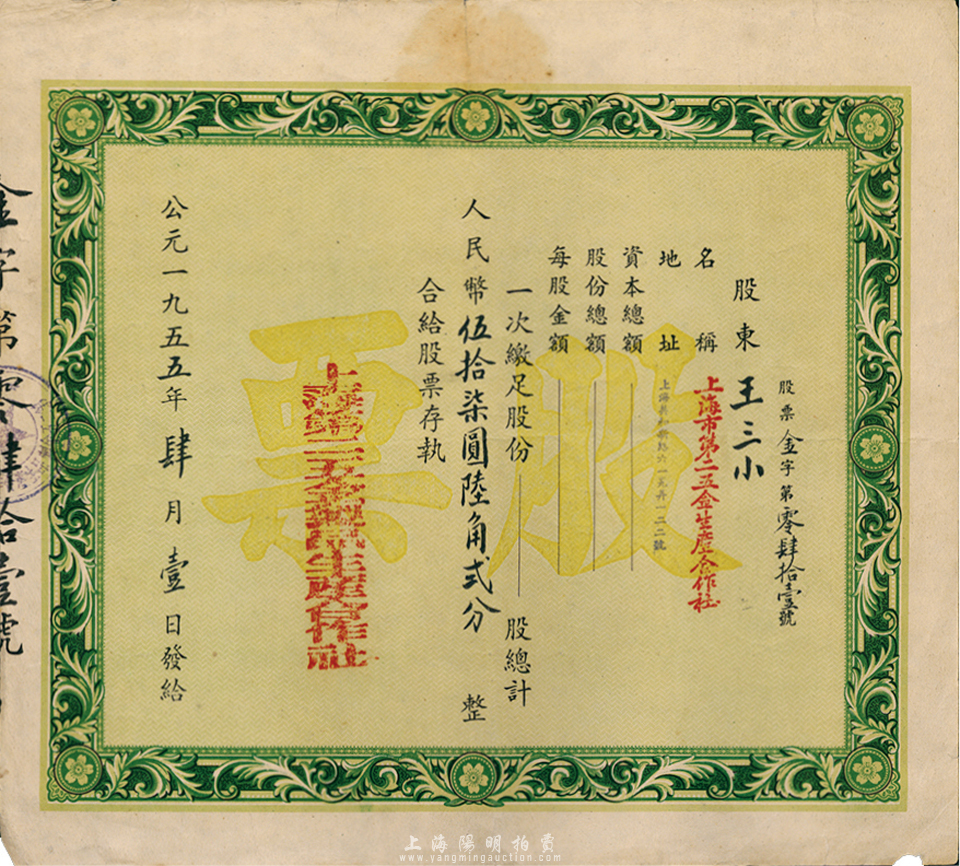 股票金字第零肆拾壹號
股東 王三小
名稱 上海市第二五金生產合作社
地址
資本總額
股份總額
每股金額
一次繳足股份 股總計
人民幣伍拾柒圓陸角弍分 整
合給股票存執
公元一九五五年肆月壹日發給
金字第零肆拾壹號
股票
上海陽明拍賣
www.yangmingauction.com